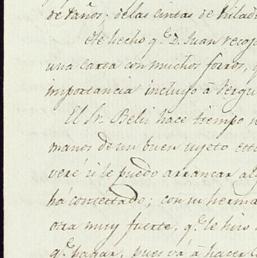 de Paños; de las cintas de hilad
He hecho q.e D. Juan recoj
una carta con muchos forros, y
importancia incluyo à Vergu
El Sr. Beliz hace tiempo
manos de un buen sujeto este
veré si le puedo arrancar al
há contestado; con su herma
otra muy fuerte, q.e le hiro
q.e pagar, pues vá à hacer